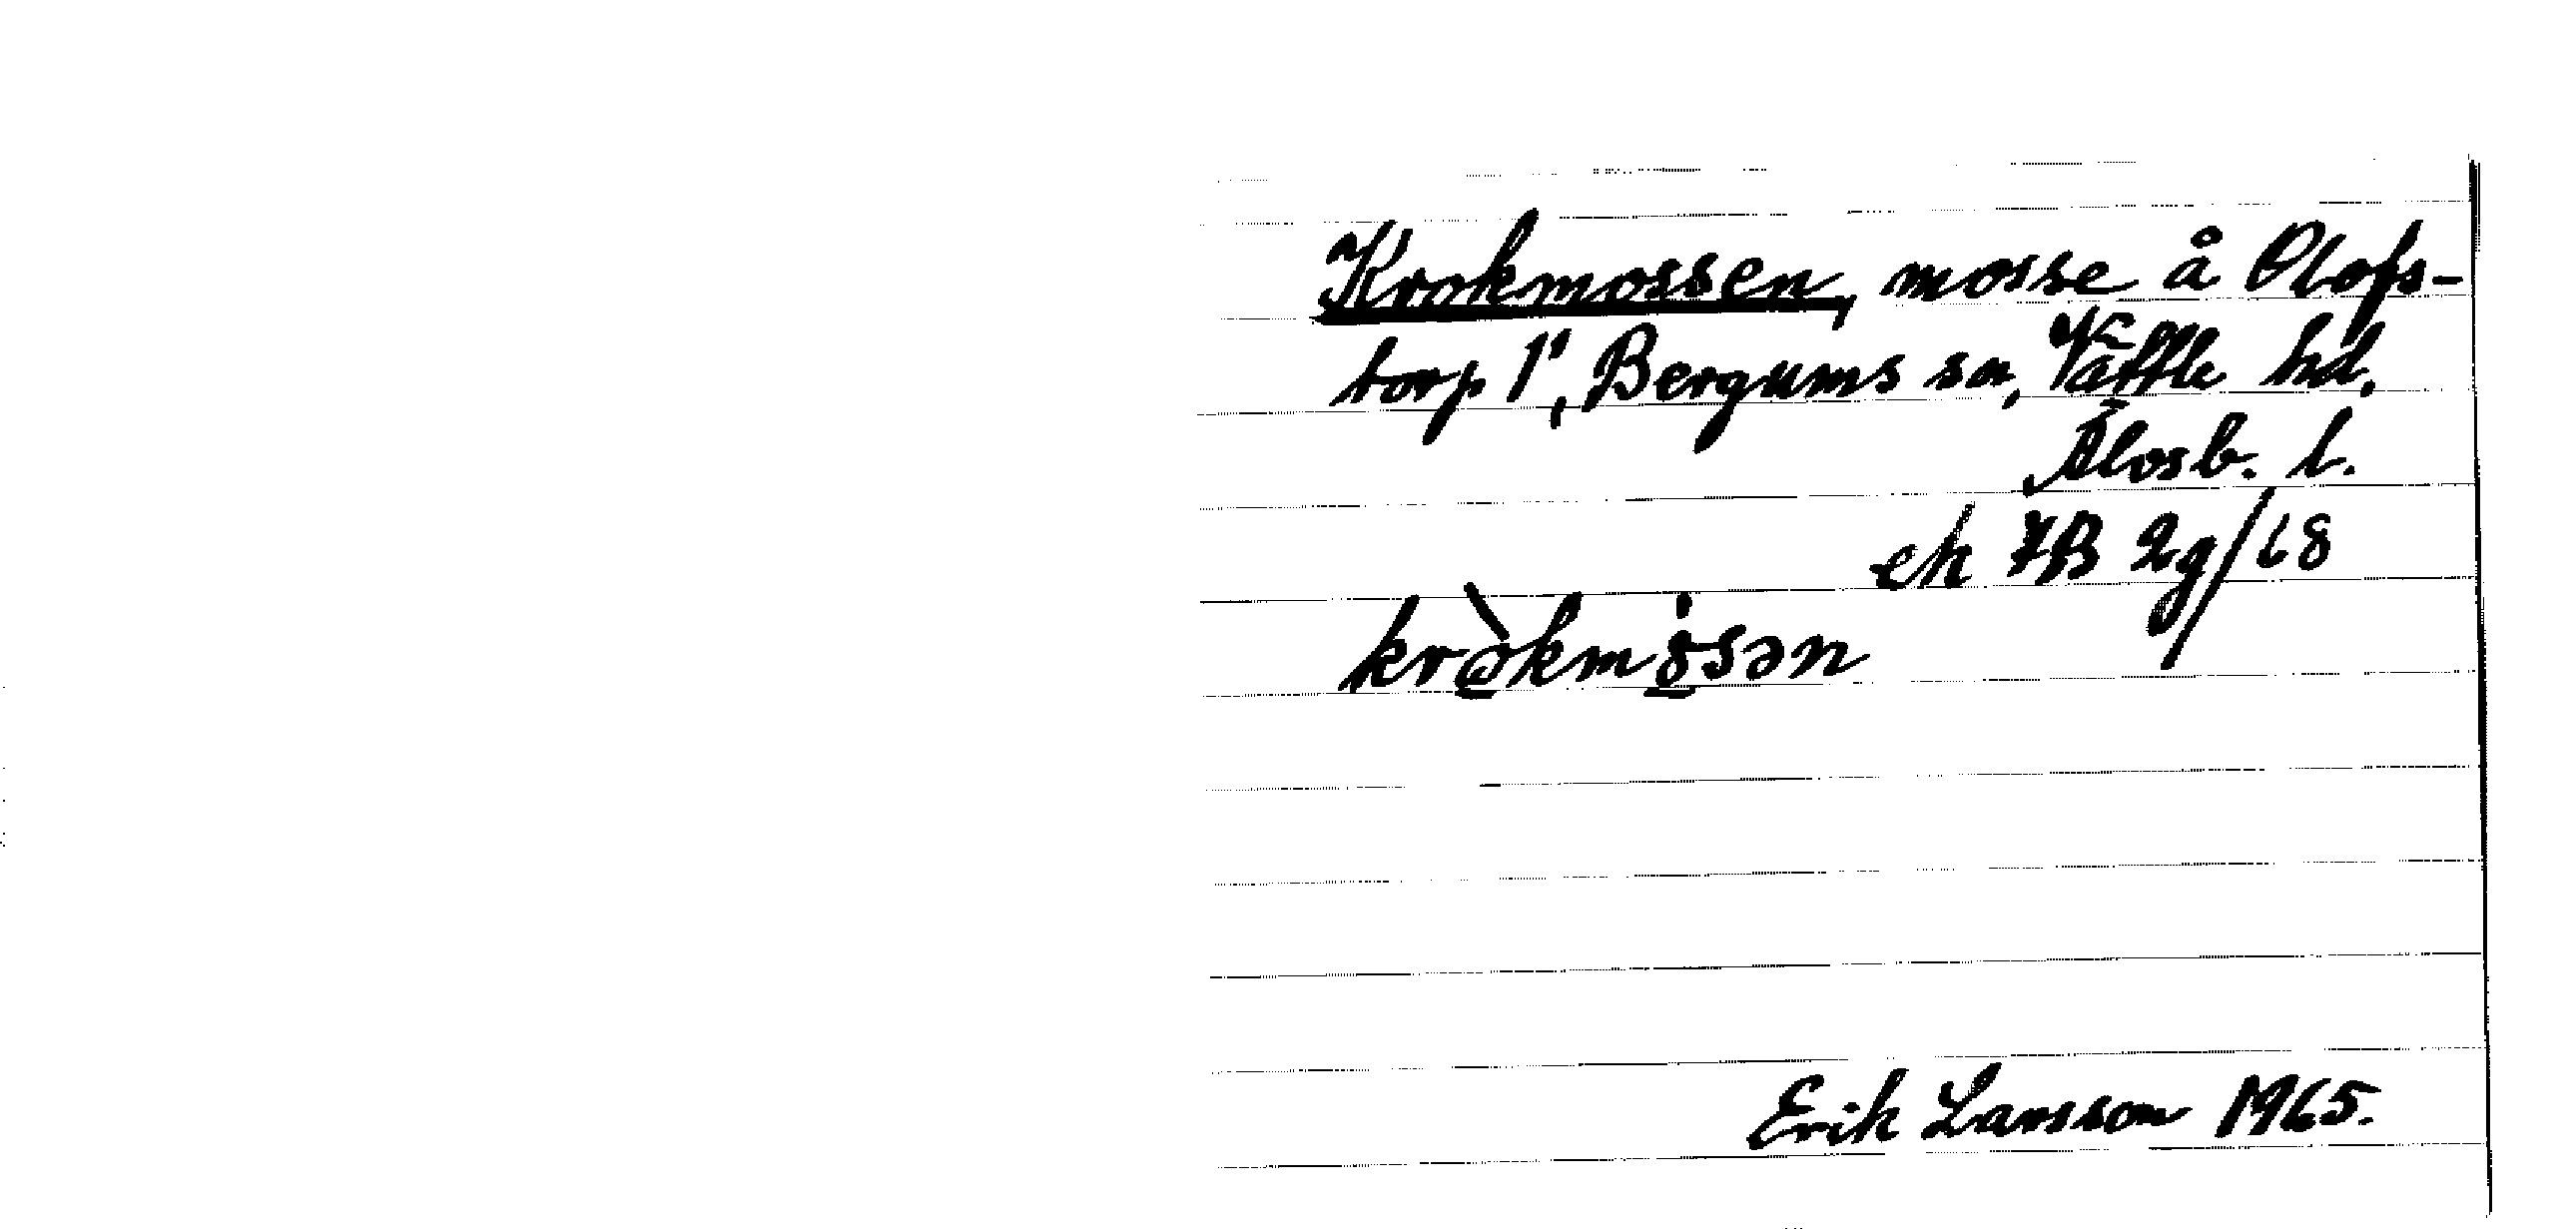 Krokmossen, mosse å Olofs-
torp 1¹, Bergums sn, Vättle hd,
Älvsb. l.
ek 7B 2g/68
kròkmósən
Erik Larsson 1965.